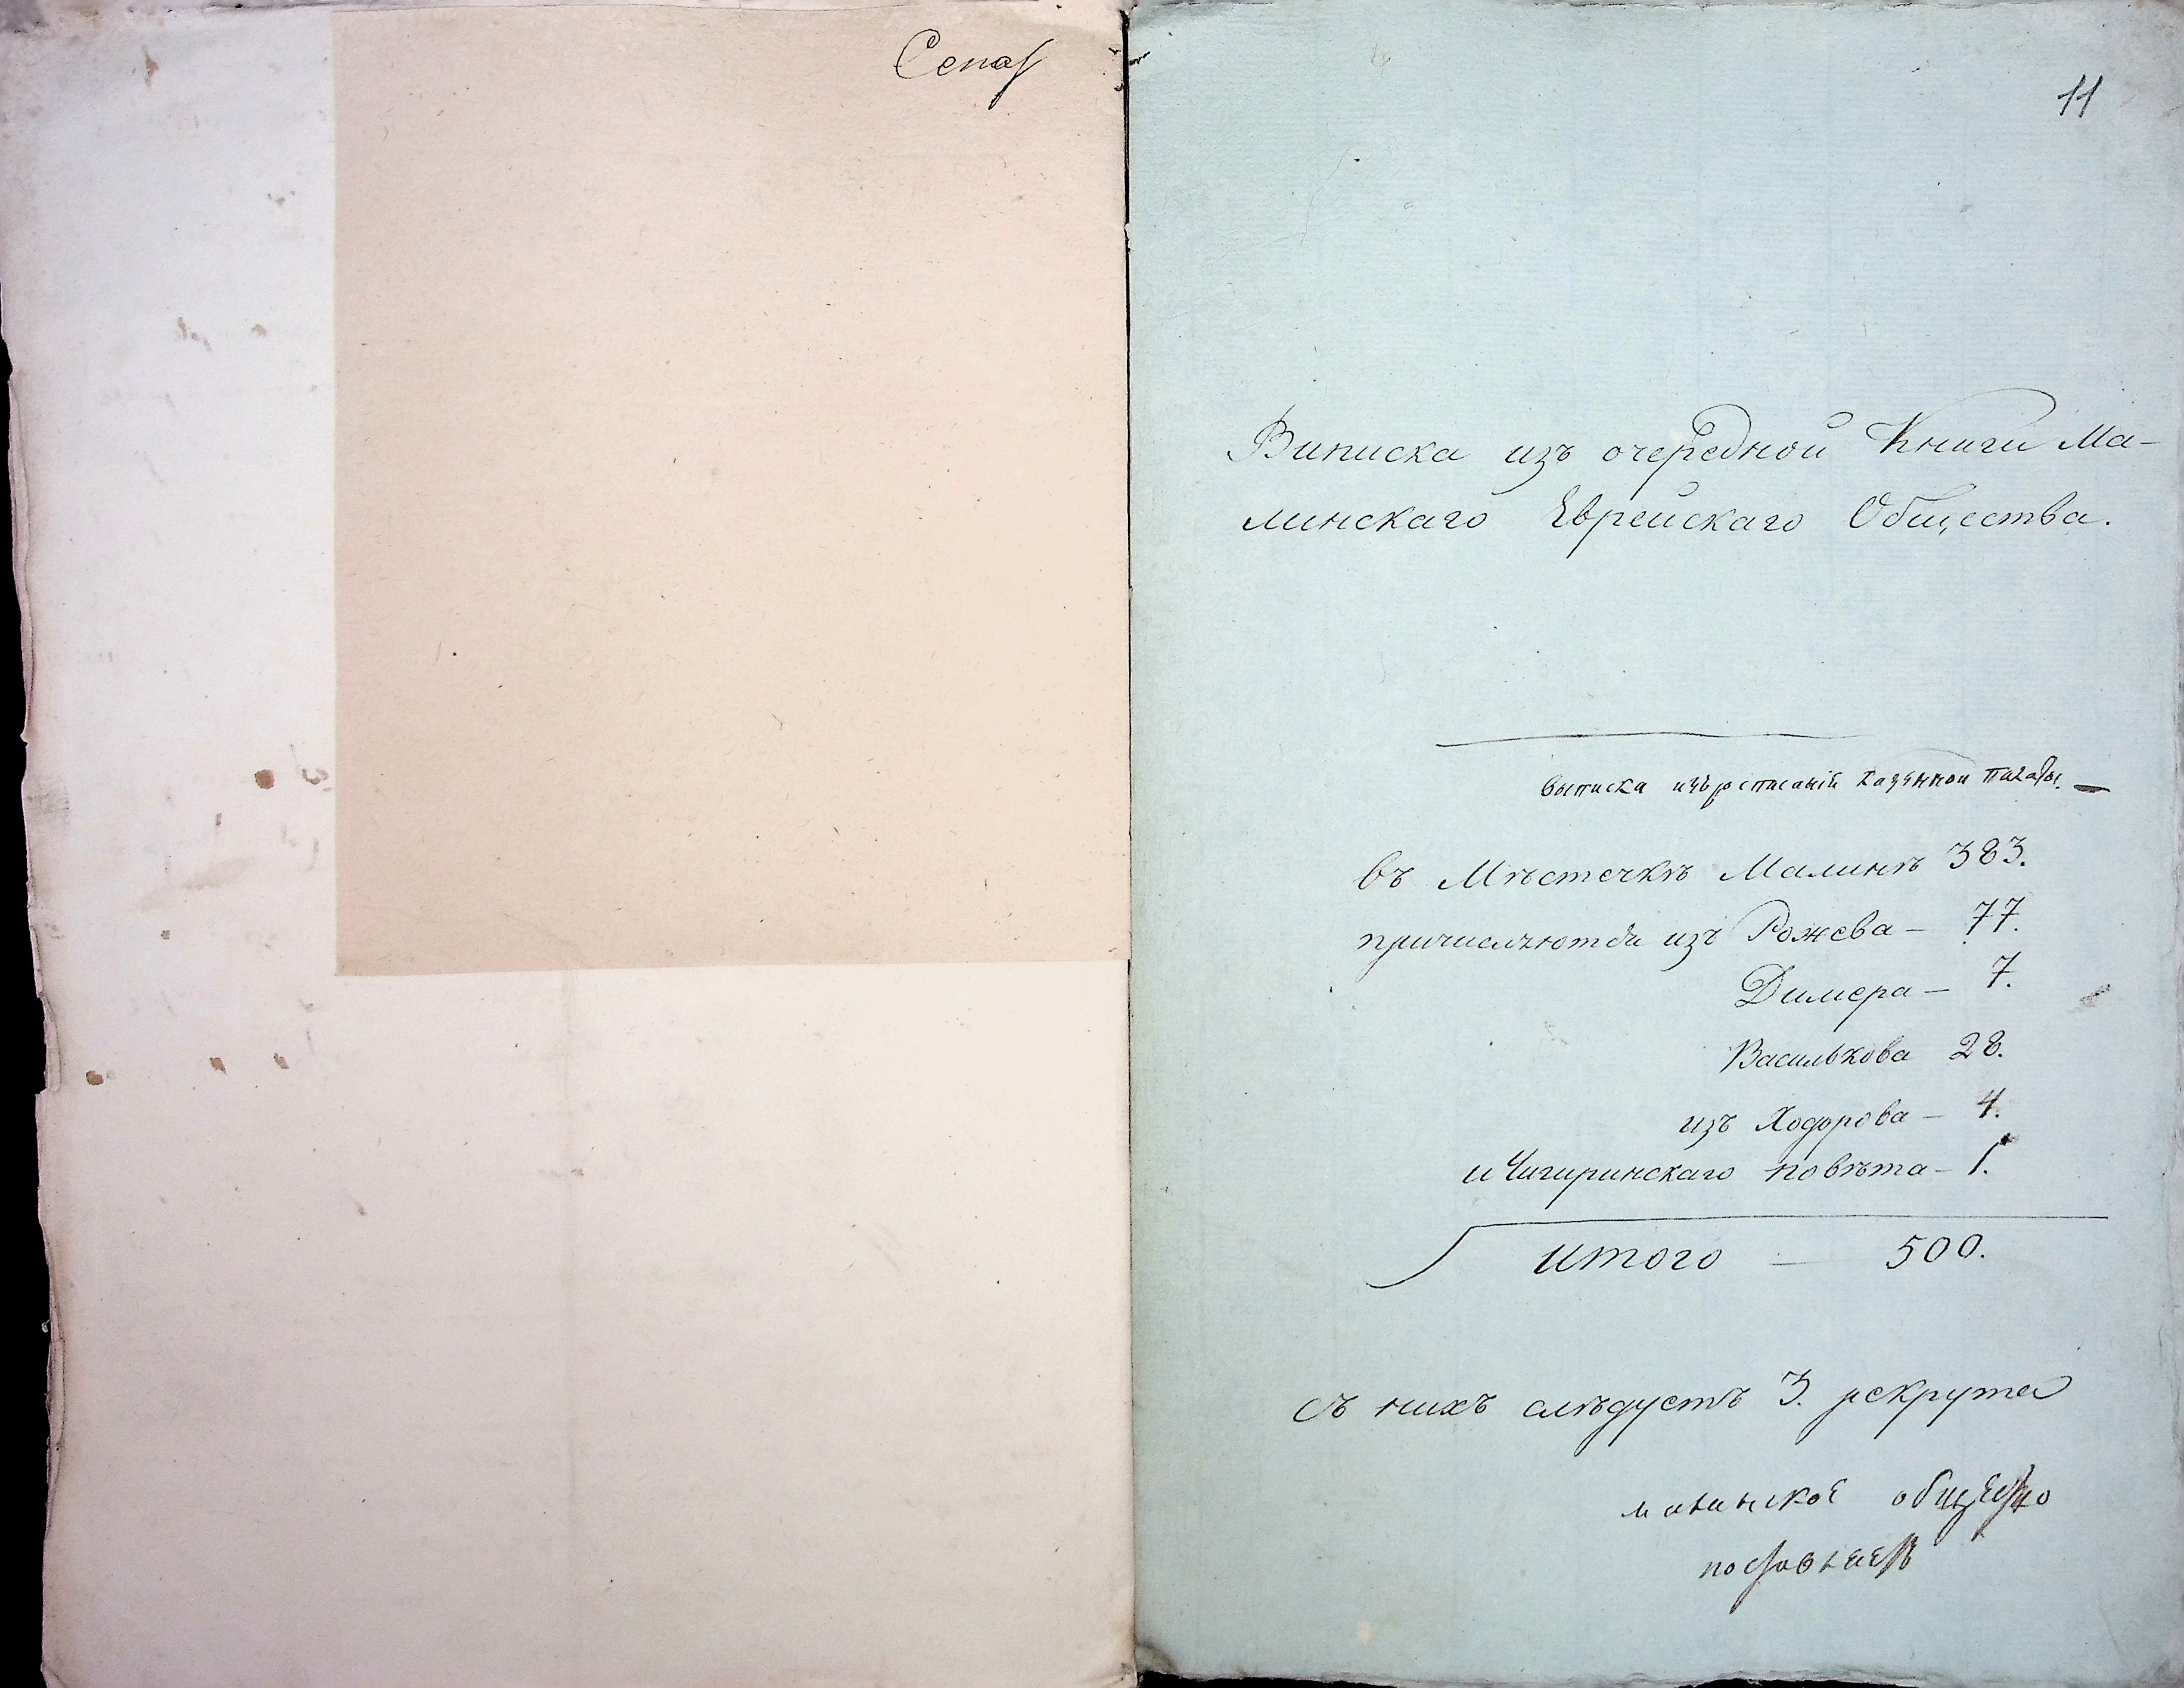 11
Виписка изъ очередной Книги Ма-
линскаго Еврейскаго Общества.
выписка изъ росписаній казенной палаты. —
въ Мѣстечкѣ Малинѣ 383.
причисляются изъ Рожева — 77.
Димера — 7.
Василькова 28.
изъ Ходорова — 4.
и Чигиринскаго повѣта — 1.
итого — 500.
съ нихъ слѣдуетъ 3. рекрута
малинское общество
поставляетъ